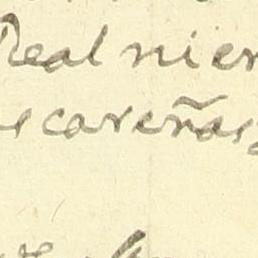 Real nier
scareñas